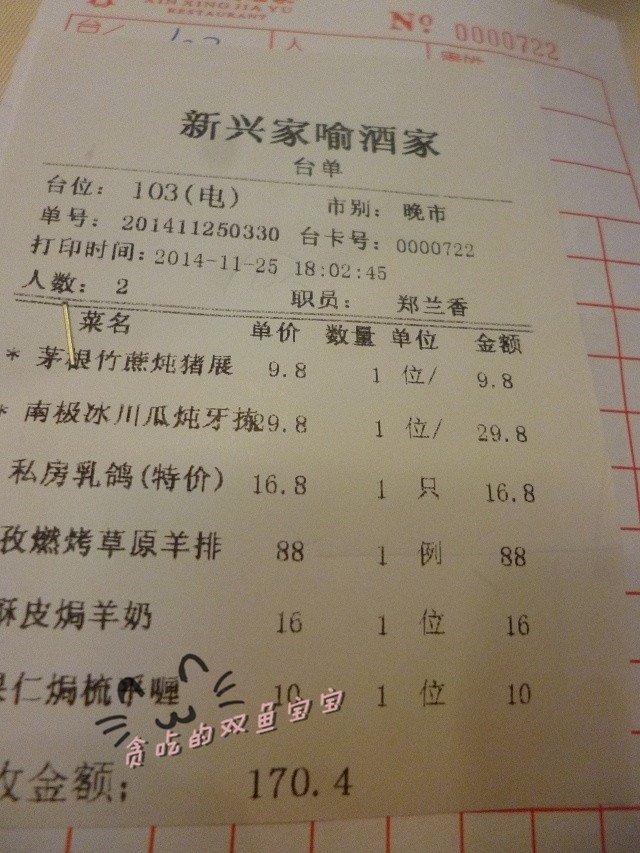 XIN XING JIA YU
RESTAURANT
Nº 0000722
台/
人
新兴家喻酒家
台单
台位: 103(电) 市别: 晚市
单号: 201411250330 台卡号: 0000722
打印时间: 2014-11-25 18:02:45
人数: 2 职员: 郑兰香
菜名 单价 数量 单位 金额
* 茅根竹蔗炖猪展 9.8 1 位/ 9.8
* 南极冰川瓜炖牙拣 29.8 1 位/ 29.8
私房乳鸽(特价) 16.8 1 只 16.8
孜燃烤草原羊排 88 1 例 88
酥皮焗羊奶 16 1 位 16
仁焗梳乎喱 10 1 位 10
贪吃的双鱼宝宝
收金额: 170.4